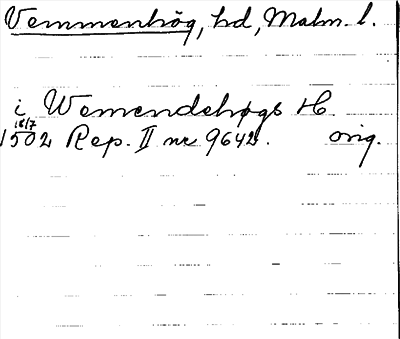 Vemmenhög, hd, Malm. l.
i Wemendehøgs H.
18/7
1502 Rep. II nr 9642. orig.